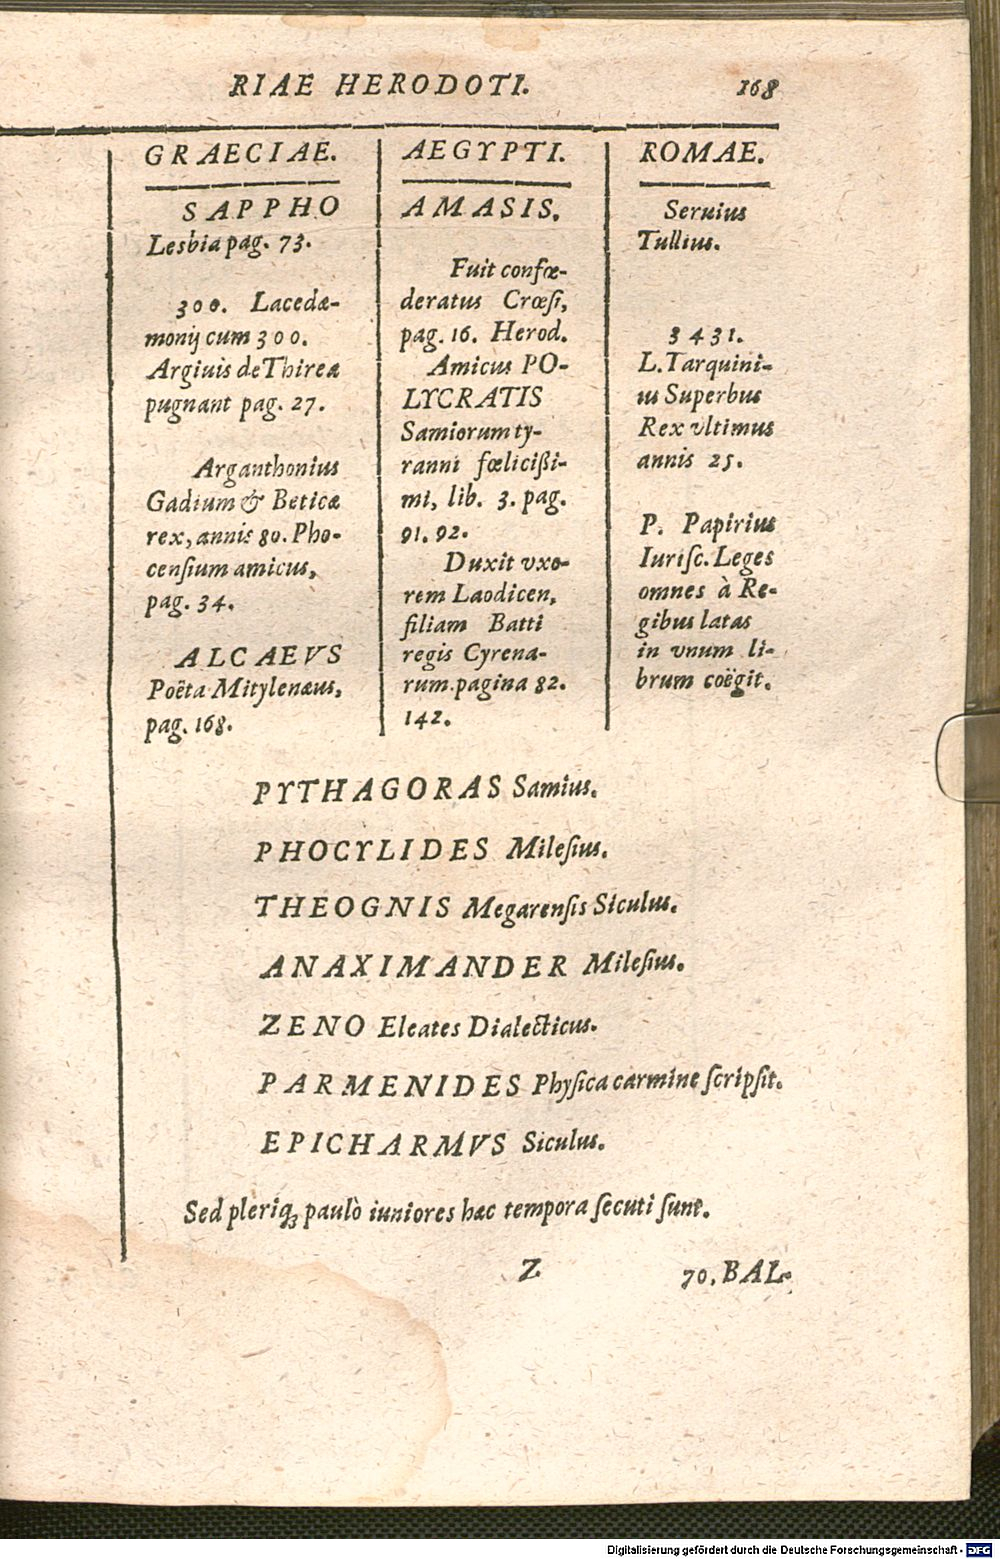 RIAE HERODOTI. 168
GRAECIAE.
SAPPHO
Lesbia pag. 73.
300. Lacedæ-
monij cum 300.
Argiuis de Thirea
pugnant pag. 27.
Arganthonius
Gadium & Beticæ
rex, annis 80. Pho-
censium amicus,
pag. 34.
ALCAEVS
Poëta Mitylenæus,
pag. 168.
AEGYPTI.
AMASIS.
Fuit confœ-
deratus Crœsi,
pag. 16. Herod.
Amicus PO-
LYCRATIS
Samiorum ty-
ranni fœlicißi-
mi, lib. 3. pag.
91. 92.
Duxit vxo-
rem Laodicen,
filiam Batti
regis Cyrena-
rum pagina 82.
142.
ROMAE.
Seruius
Tullius.
3431.
L. Tarquini-
us Superbus
Rex vltimus
annis 25.
P. Papirius
Iurisc. Leges
omnes à Re-
gibus latas
in vnum li-
brum coëgit.
PYTHAGORAS Samius.
PHOCYLIDES Milesius.
THEOGNIS Megarensis Siculus.
ANAXIMANDER Milesius.
ZENO Eleates Dialecticus.
PARMENIDES Physica carmine scripsit.
EPICHARMVS Siculus.
Sed pleriq; paulò iuniores hæc tempora secuti sunt.
Z 70. BAL-
Digitalisierung gefördert durch die Deutsche Forschungsgemeinschaft - DFG